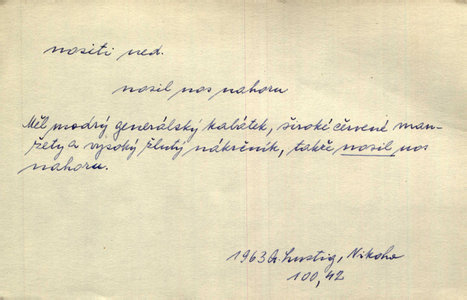 nositi ned.
nosil nos nahoru
Měl modrý generálský kabátek, široké červené man-
žety a vysoký žlutý nákrčník, takže nosil nos
nahoru.
1963 A. Lustig, Nikoho
100, 42